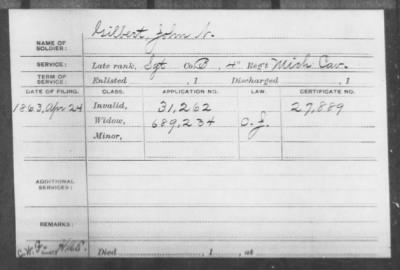 NAME OF SOLDIER: Gilbert, John N.
SERVICE: Late rank, Sgt Co. D, 4" Reg't Mich. Cav.
TERM OF SERVICE: Enlisted , 1 Discharged , 1
DATE OF FILING. CLASS. APPLICATION NO. LAW. CERTIFICATE NO.
1863, Apr 24 Invalid, 31,262 27,889
Widow, 689,234 O. L.
Minor,
ADDITIONAL SERVICES:
REMARKS:
Died , 1 , at